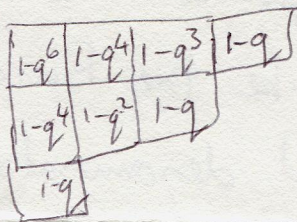 1-q⁶ 1-q⁴ 1-q³ 1-q
1-q⁴ 1-q² 1-q
1-q